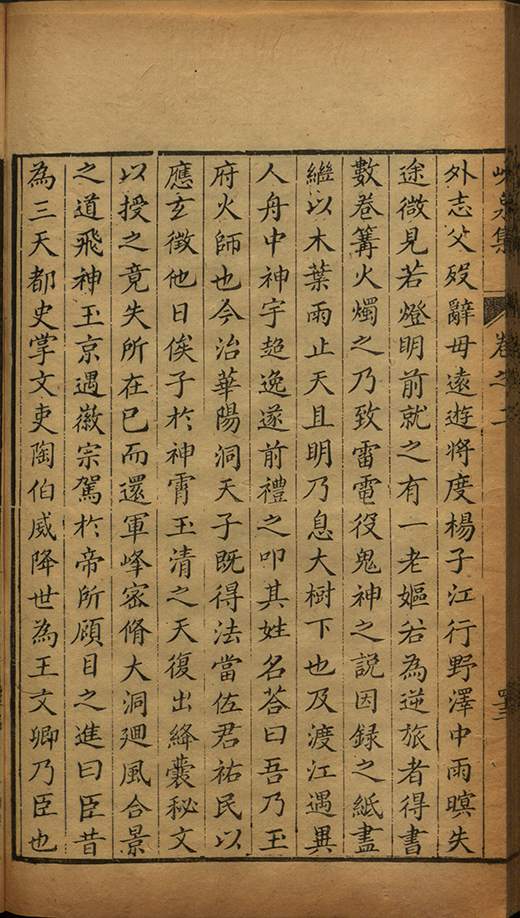 峴泉集 卷之二 四三
外志父歿辭母遠遊將度楊子江行野澤中雨暝失
途微見若燈明前就之有一老嫗若為逆旅者得書
數卷篝火燭之乃致雷電役鬼神之說因録之紙盡
繼以木葉雨止天且明乃息大樹下也及渡江遇異
人舟中神宇超逸遂前禮之叩其姓名荅曰吾乃玉
府火師也今治華陽洞天子既得法當佐君祐民以
應玄徵他日俟子於神霄玉清之天復出絳囊秘文
以授之竟失所在已而還軍峰密脩大洞廻風合景
之道飛神玉京遇徽宗駕於帝所頋目之進曰臣昔
為三天都史掌文吏陶伯威降世為王文卿乃臣也